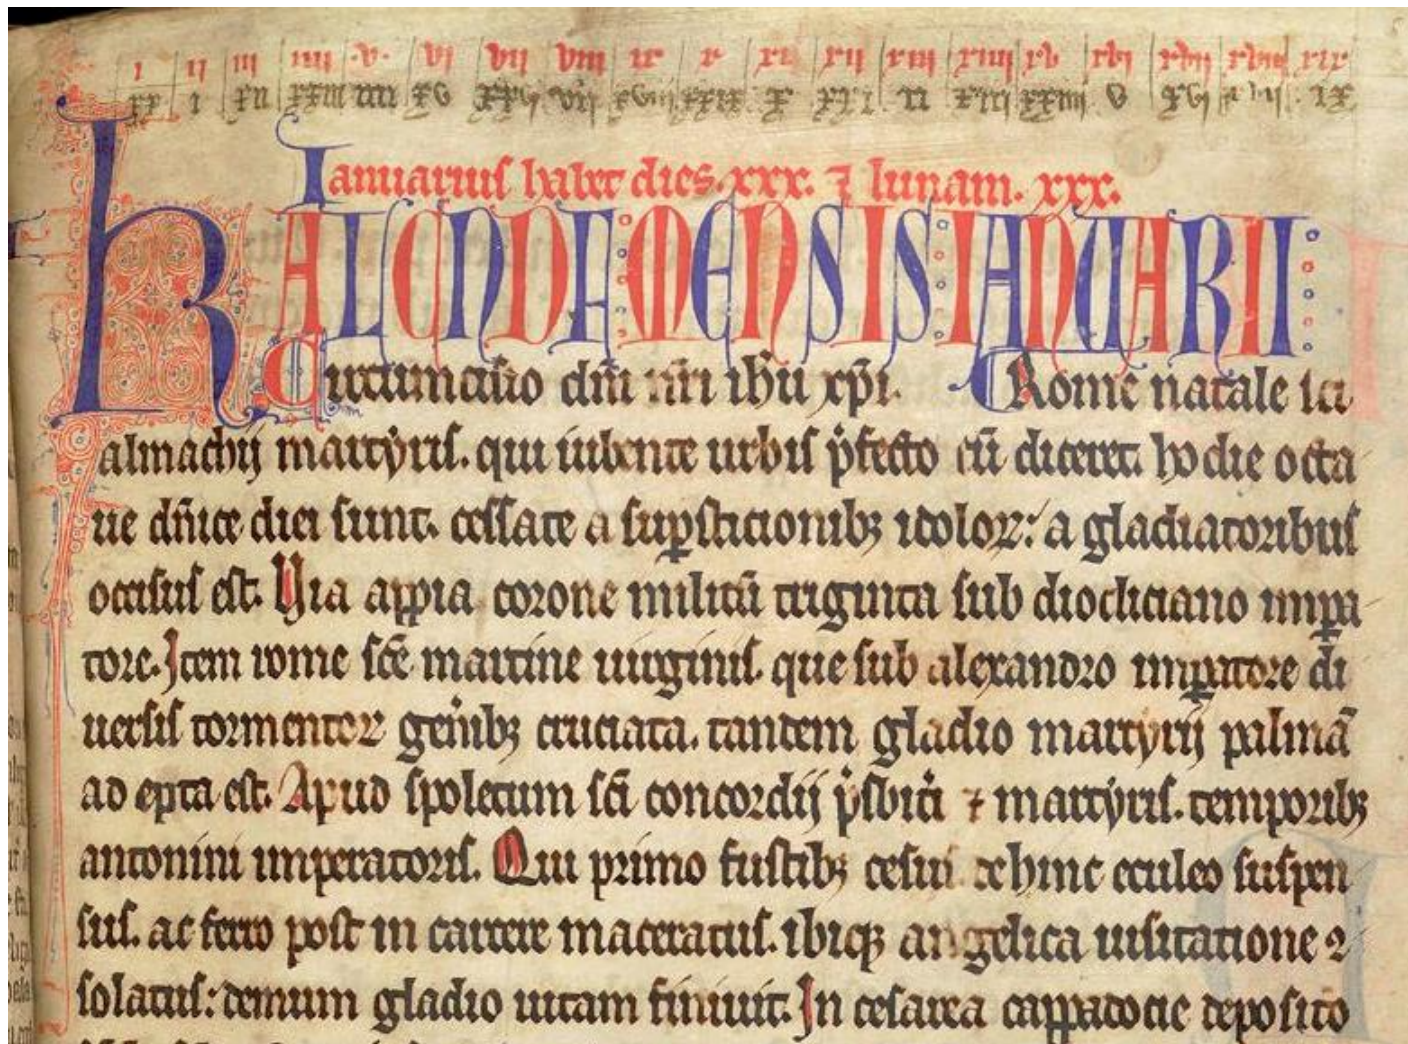 i ii iii iiii .v. vi vii viii ix x xi xii xiii xiiii xv xvi xvii xviii xix
xx i xii xxiii iiii xv xxvi vii xviii xxix x xxi ii xiii xxiiii v xvi ix
Ianuarius habet dies. xxx. ⁊ lunam. xxx.
KALENDE MENSIS IANUARII
Circumcisio dn̄i nr̄i ihū xp̄i. Rome natale sc̄i
almachij martyris. qui iubente urbis p̄fecto cū diceret. hodie octa
ue dn̄ice diei sunt. cessate a suꝑsticionibꝫ idoloꝝ: a gladiatoribus
occisus est. Uia appia corone militū triginta sub diocliciano imꝑa
tore. Item rome sc̄e martine uirginis. que sub alexandro imꝑatore di
uersis tormentoꝝ gen̄ibꝫ cruciata. tandem gladio martyrij palmā
adepta est. Apud spoletum sc̄i concordij p̄sbiti ⁊ martyris. temporibꝫ
antonini imperatoris. Qui primo fustibꝫ cesus dehinc eculeo suspen
sus. ac ferro post in carcere maceratus. ibiqꝫ angelica uisitatione ꝯ
solatus: demum gladio uitam finiuit. In cesarea cappadocie deposito